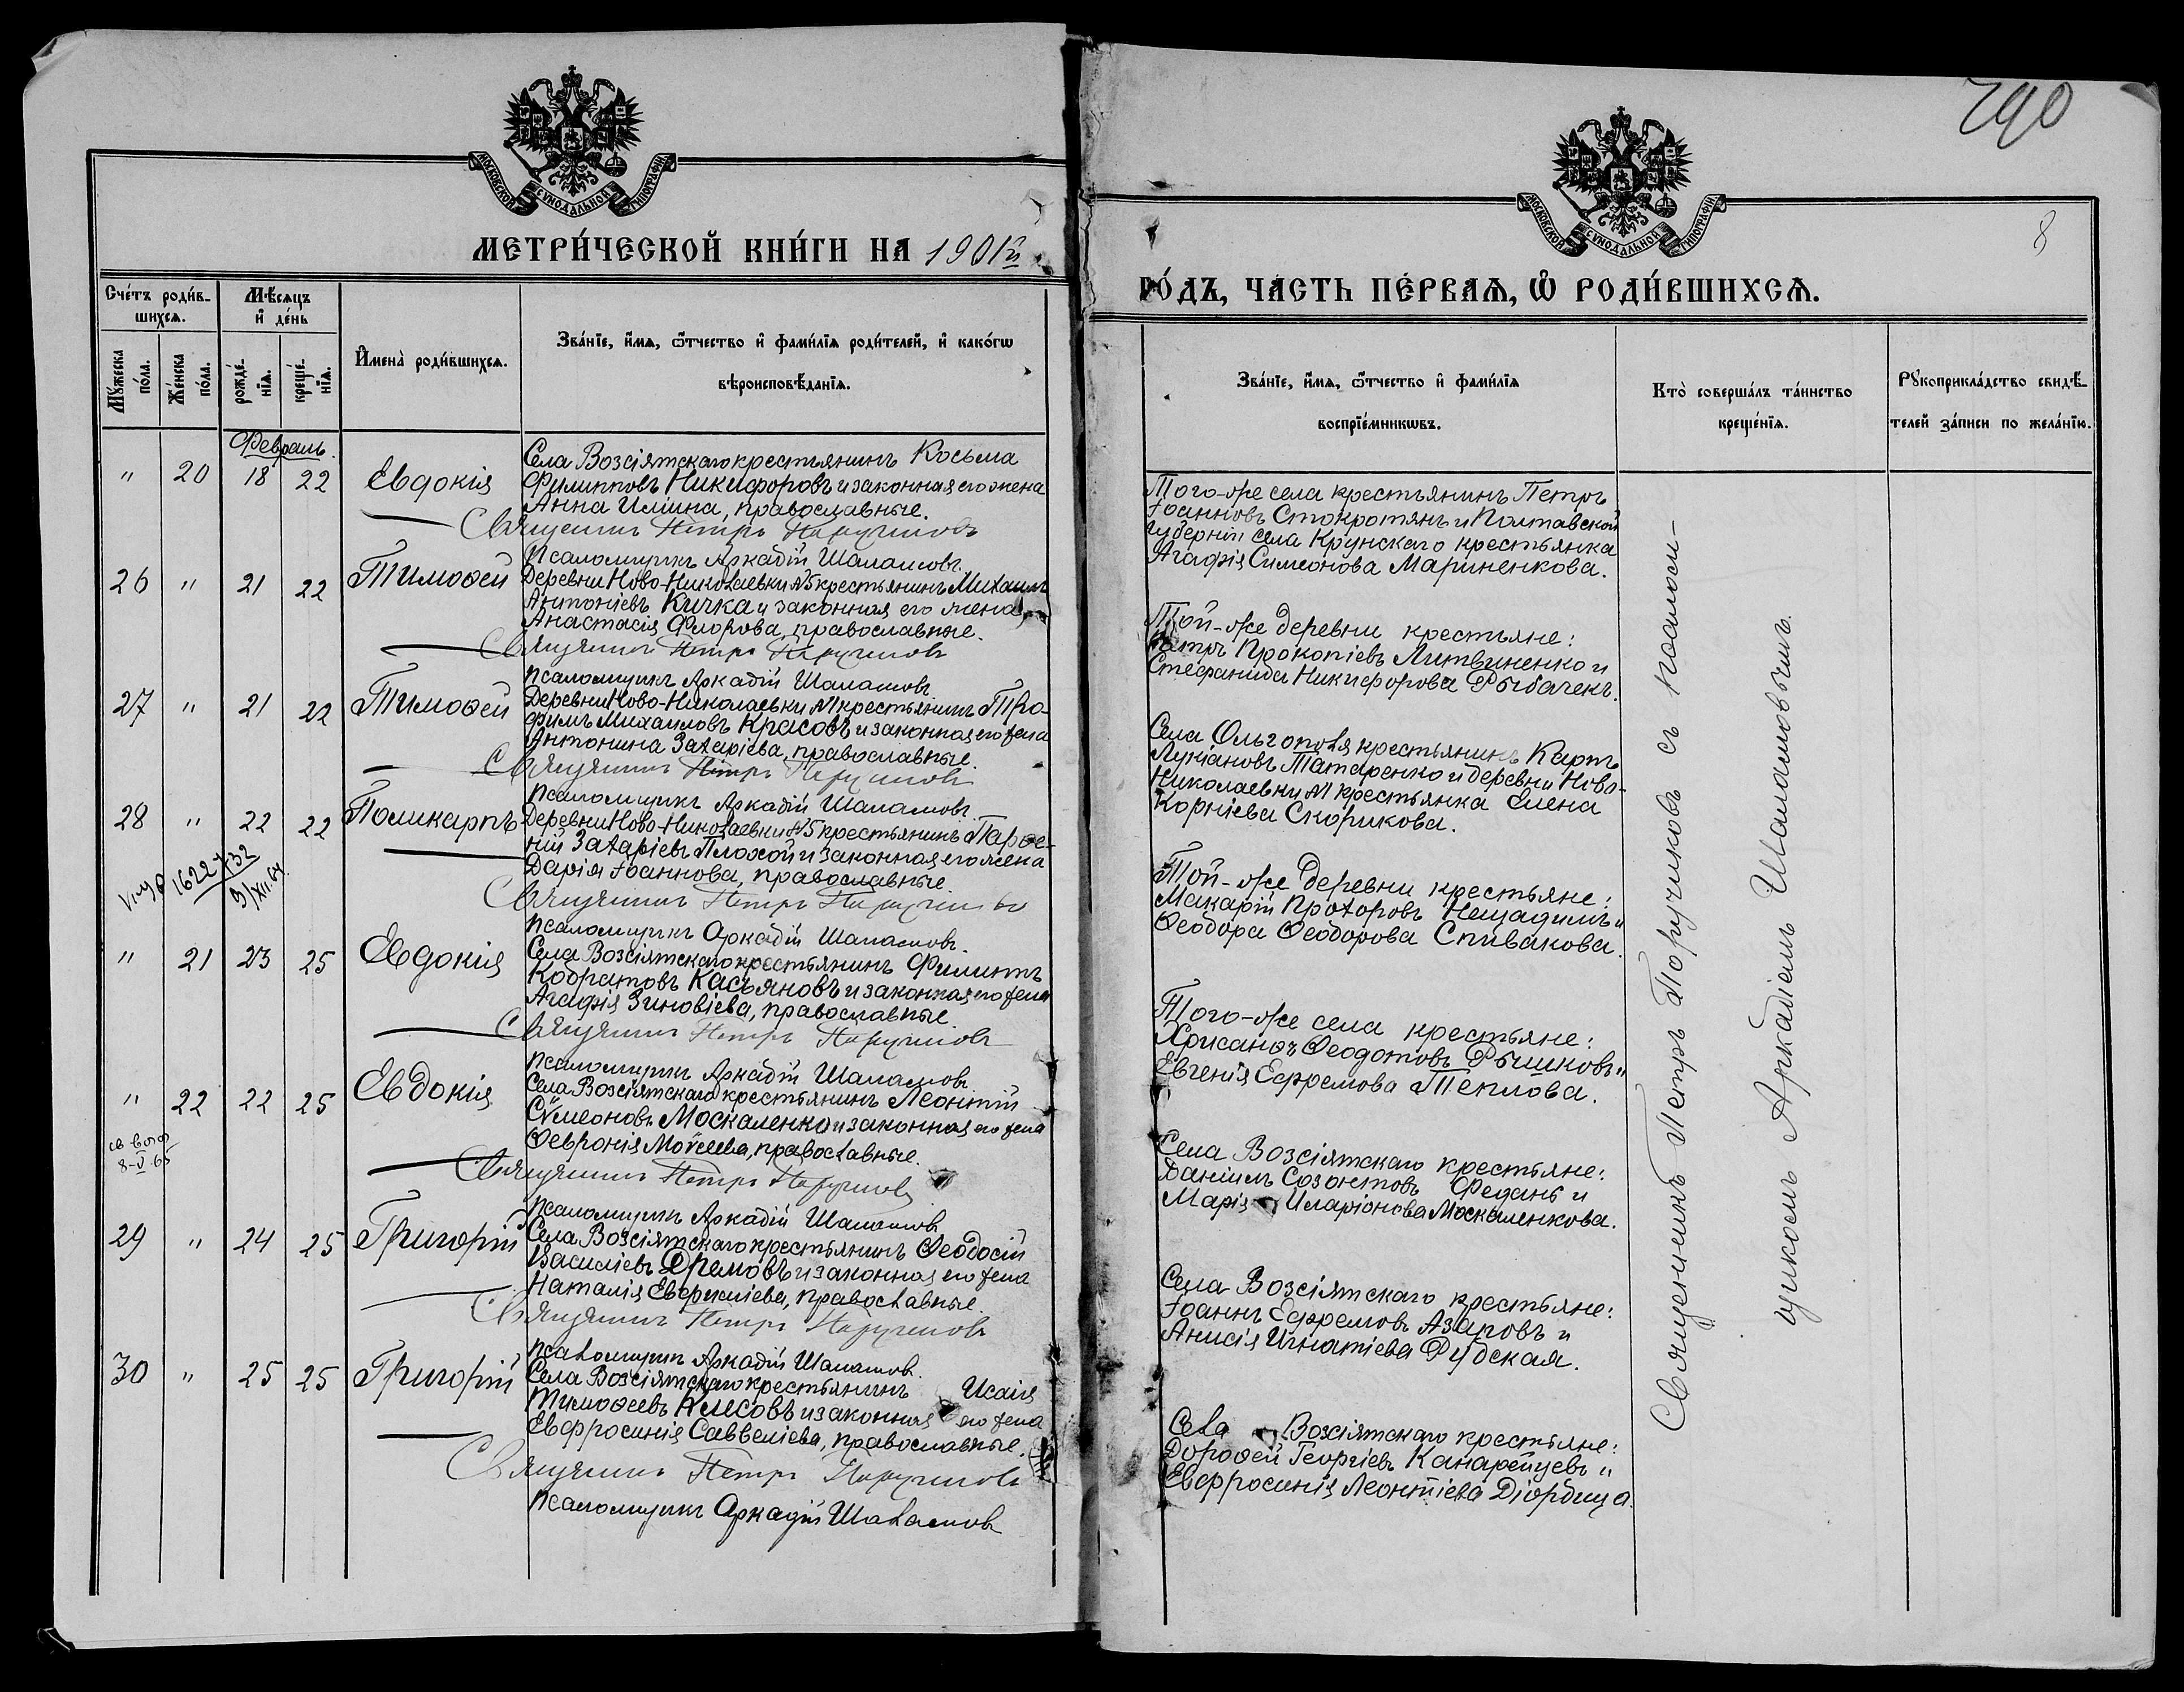 МОСКОВСКОЙ СУНОДАЛЬНОЙ ТИПОГРАФІИ
МЕТРИ́ЧЕСКОЙ КНИ́ГИ НА 1901й
Сче́тъ роди́в-
шихсѧ.
Мѣ́сѧцъ
и҆ де́нь
И҆мена̀ роди́вшихсѧ.
Зва́нїе, и҆́мѧ, ѻ҆́тчество и҆ фами́лїѧ роди́телей, и҆ како́гѡ
вѣроисповѣ́данїѧ.
Мꙋ́жеска
по́ла.
Же́нска
по́ла.
рожде́-
нїѧ.
креще́-
нїѧ.
Февраль.
" 20 18 22 Евдокія
Села Возсіятскаго крестьянинъ Косьма
Филипповъ Никифоровъ и законная его жена
Анна Иліина, православные.
Священникъ Петръ Поручиковъ
Псаломщикъ Аркадій Шаламовъ.
26 " 21 22 Тимоѳей
Деревни Ново-Николаевки №5 крестьянинъ Михаилъ
Антоніевъ Кичка и законная его жена
Анастасія Флорова, православные.
Священникъ Петръ Поручиковъ
Псаломщикъ Аркадій Шаламовъ.
27 " 21 22 Тимоѳей
Деревни Ново-Николаевки №1 крестьянинъ Тро-
фимъ Михаиловъ Красовъ и законная его жена
Антонина Захаріева, православные.
Священникъ Петръ Поручиковъ
Псаломщикъ Аркадій Шаламовъ.
28 " 22 22 Поликарпъ
Деревни Ново-Николаевки №5 крестьянинъ Парѳе-
ній Захаріевъ Плохой и законная его жена
Дарія Іоаннова, православные.
1622
732
9/XII.64.
Священникъ Петръ Поручиковъ
Псаломщикъ Аркадій Шаламовъ.
" 21 23 25 Евдокія
Села Возсіятскаго крестьянинъ Филиппъ
Кодратовъ Касьяновъ и законная его жена
Агафія Зиновіева, православные.
Священникъ Петръ Поручиковъ
Псаломщикъ Аркадій Шаламовъ
" 22 22 25 Евдокія
Села Возсіятскаго крестьянинъ Леонтій
Сѵмеоновъ Москаленко и законная его жена
Ѳевронія Моѵсеева, православные.
8-V-65
Священникъ Петръ Поручиковъ
Псаломщикъ Аркадій Шаламовъ
29 " 24 25 Григорій
Села Возсіятскаго крестьянинъ Ѳеодосій
Василіевъ Дремовъ и законная его жена
Наталія Евфиміева, православные.
Священникъ Петръ Поручиковъ
Псаломщикъ Аркадій Шаламовъ.
30 " 25 25 Григорій
Села Возсіятскаго крестьянинъ Исаія
Тимоѳеевъ и законная его жена
Евфросинія Савveліева, православные.
Священникъ Петръ Поручиковъ
Псаломщикъ Аркадій Шаламовъ
290
8
МОСКОВСКОЙ СУНОДАЛЬНОЙ ТИПОГРАФІИ
ГО́ДЪ, ЧА́СТЬ ПЕ́РВАѦ, Ѡ҆ РОДИ́ВШИХСѦ.
Зва́нїе, и҆́мѧ, ѻ҆́тчество и҆ фами́лїѧ
воспрїе́мникѡвъ.
Кто̀ соверша́лъ та́инство
креще́нїѧ.
Рꙋкоприкла́дство свидѣ́-
телей за́писи по жела́нїю.
Того-же села крестьянинъ Петръ
Іоанновъ Стократянъ и Полтавской
губерніи села Крунскаго крестьянка
Агафія Симеонова Мариненкова.
Той-же деревни крестьяне:
Петръ Прокопіевъ Литвиненко и
Стефанида Никифорова Рыбачекъ.
Села Ольгополя крестьянинъ Карпъ
Лукіановъ Татаренко и деревни Ново-
Николаевки №1 крестьянка Елена
Корніева Скорикова.
Той-же деревни крестьяне:
Макарій Прохоровъ Нещадимъ и
Ѳеодора Ѳеодорова Спивакова.
Того-же села крестьяне:
Хрисанѳъ Ѳеодотовъ Рышковъ и
Евгенія Ефремова Теплова.
Села Возсіятскаго крестьяне:
Даніилъ Созонтовъ Федань и
Марія Иларіонова Москаленкова.
Села Возсіятскаго крестьяне:
Іоаннъ Ефремовъ Азаровъ и
Анисія Игнатіева Рудская.
Села Возсіятскаго крестьяне:
Дороѳей Георгіевъ Канарейцевъ и
Евфросинія Леонтіева Діордица.
Священникъ Петръ Поручиковъ съ псалом-
щикомъ Аркадіемъ Шаламовымъ.